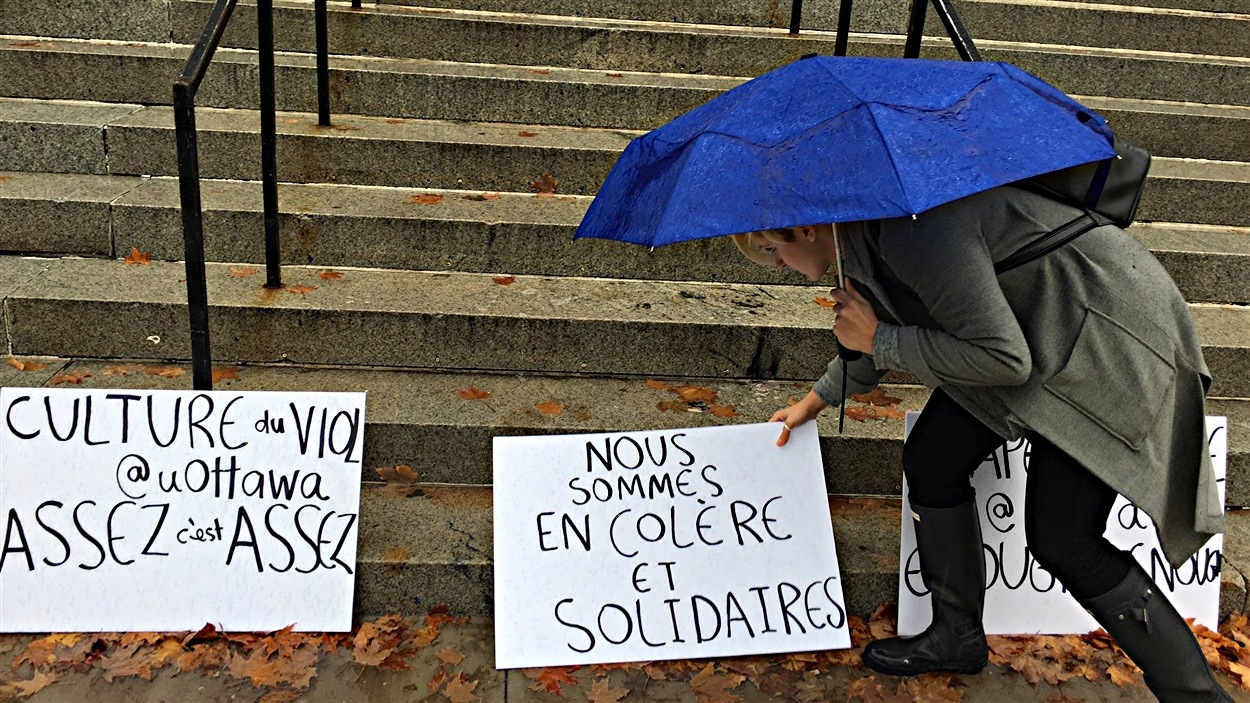 CULTURE du VIOL
@uOttawa
ASSEZ c'est ASSEZ
NOUS
SOMMES
EN COLÈRE
ET
SOLIDAIRES
@